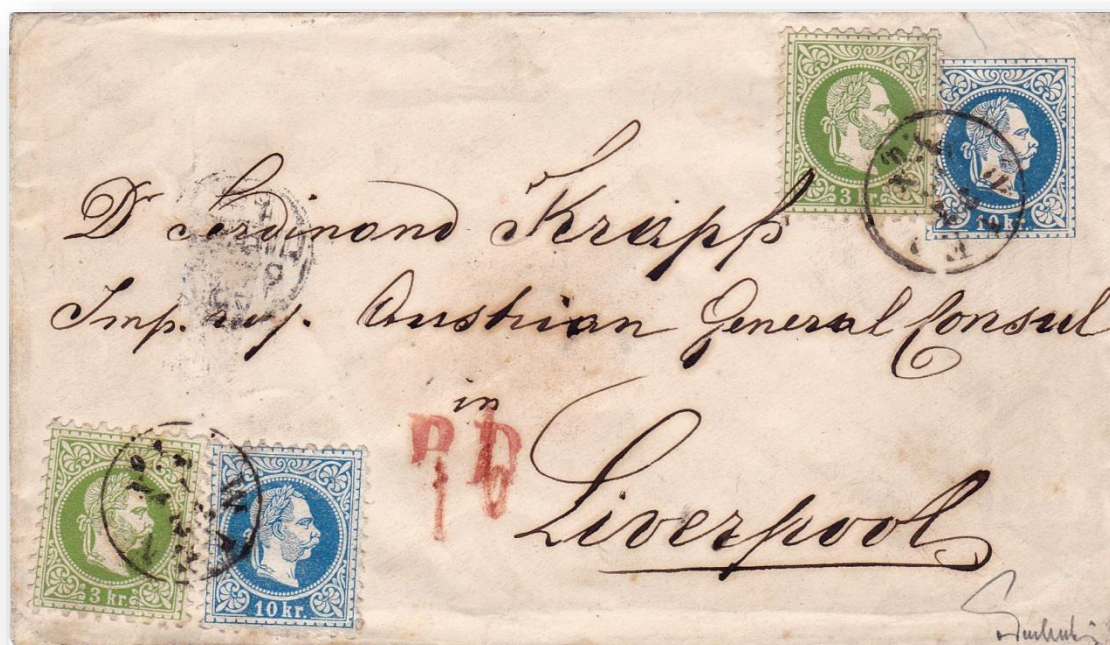 3 kr.
10 kr.
Dr Ferdinand Krapf
Imp. roy. Austrian General Consul
in
Liverpool
3 kr.
10 kr.
PD